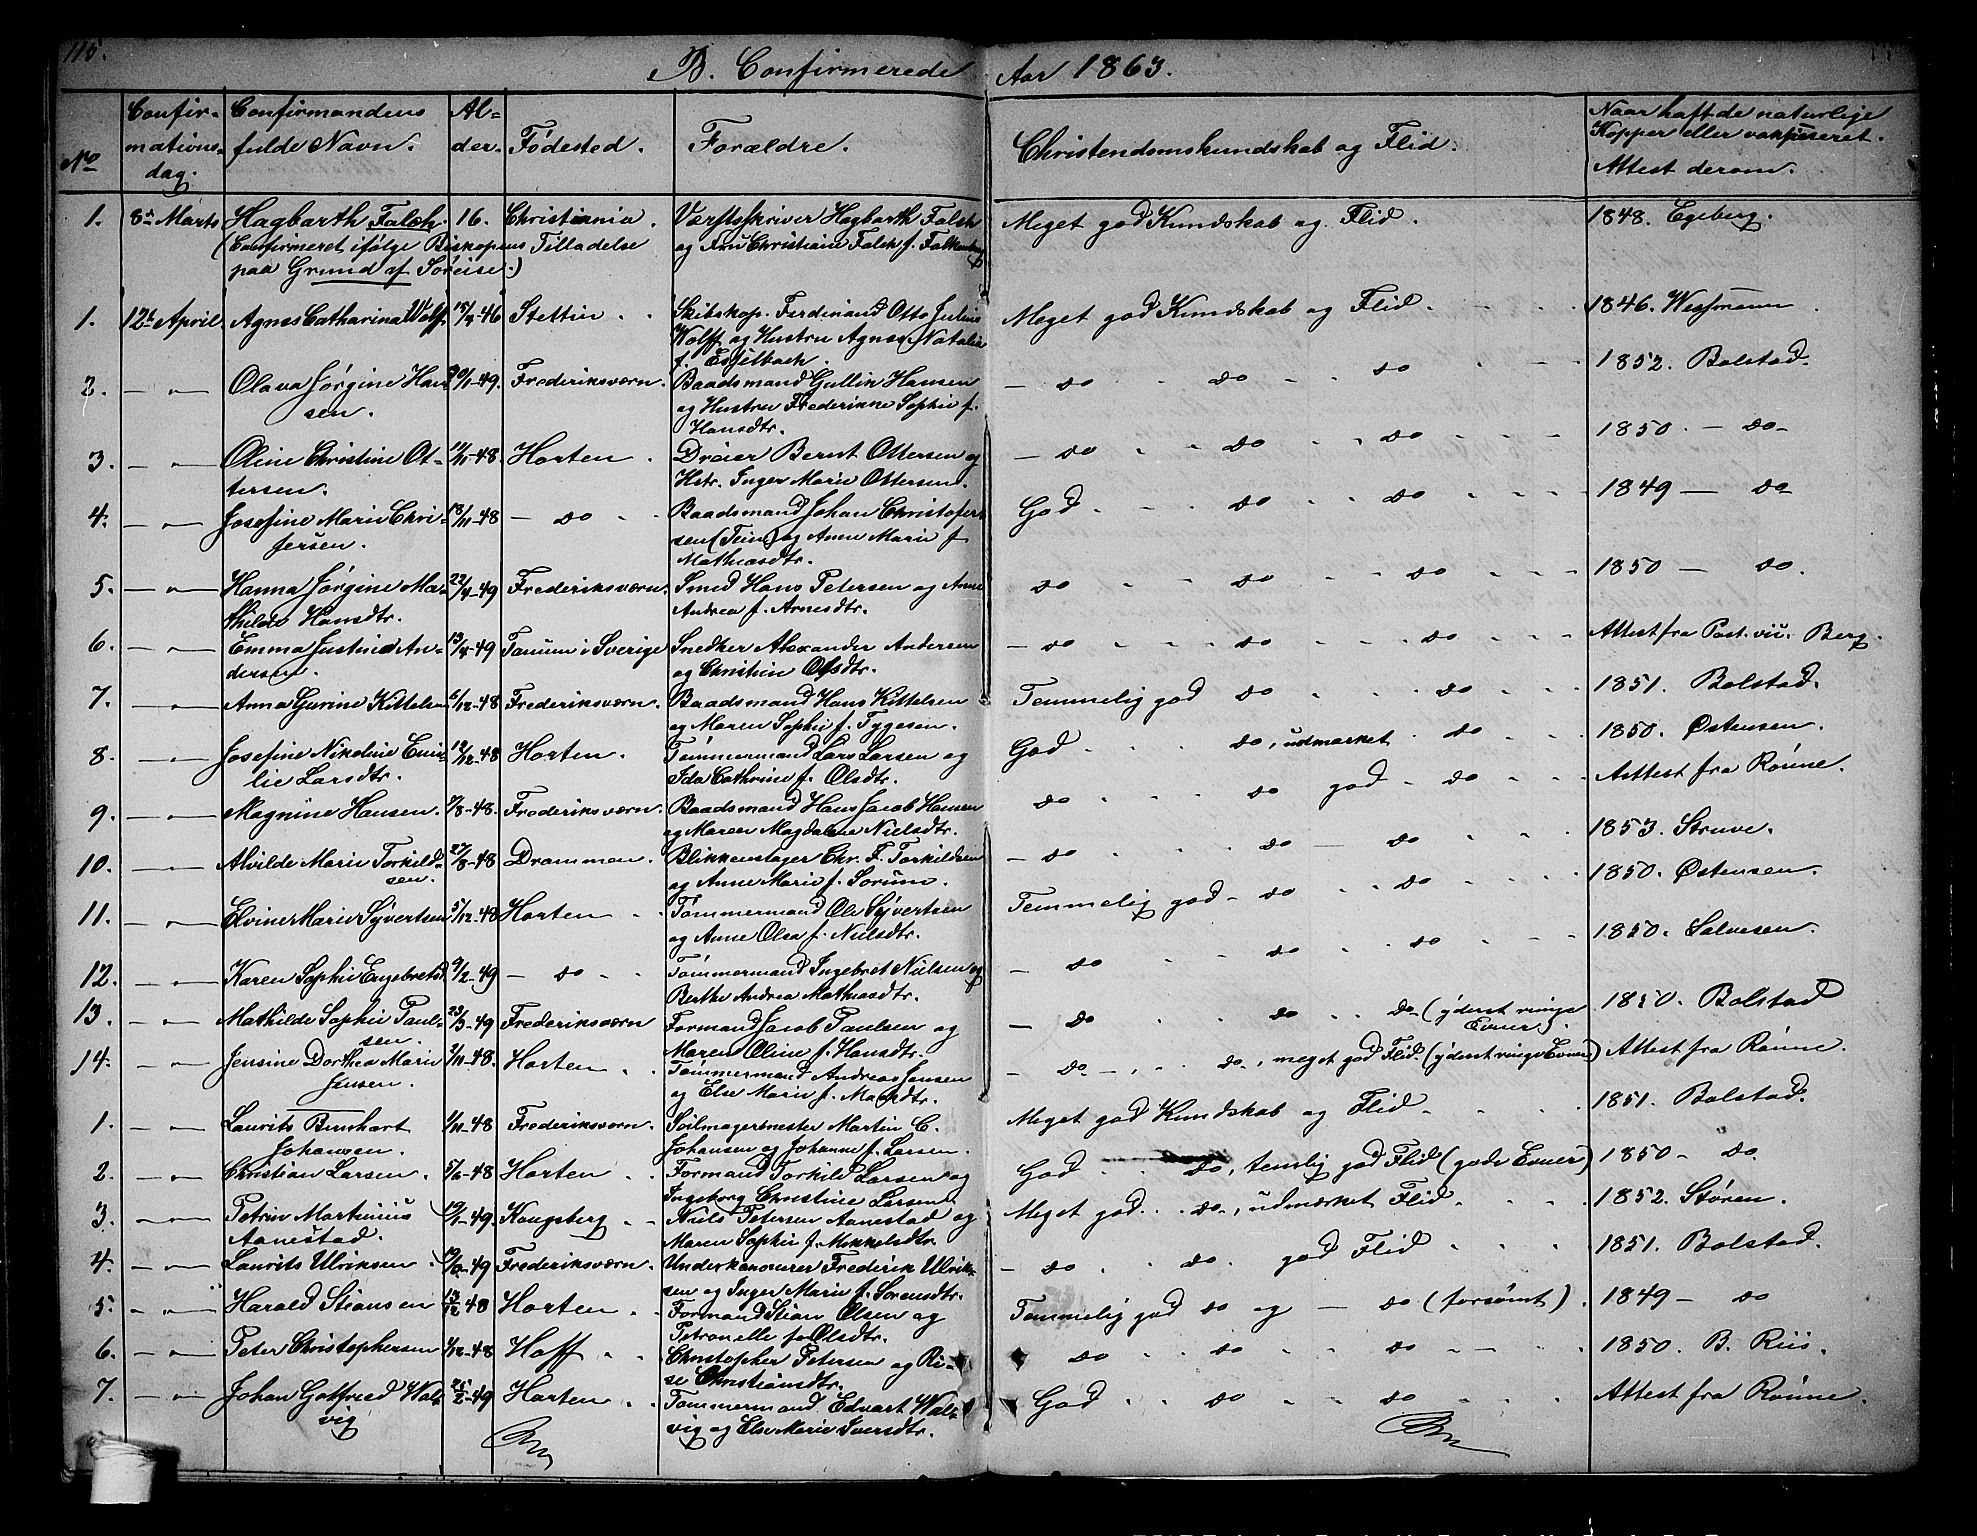 115.
B. Confirmerede Aar 1863.
No
Confirmationsdag.
Confirmandens fulde Navn.
Alder.
Fødested.
Forældre.
Christendomskundskab og Flid.
Naar haft de naturlige Kopper eller vakcineret. Attest derom.
1. 8de Marts Hagbarth Falch. 16. Christiania. Værftsskriver Hagbarth Falch Meget god Kundskab og Flid. 1848. Egeberg.
(Confirmeret ifølge Biskopens Tilladelse og Fru Christiane Falch f. Falkenberg
paa Grund af Søreise.)
1. 12te April Agnes Catharina Wolff 46 Stettin Skibskap. Ferdinand Otto Julius Meget god Kundskab og Flid. 1846. Wessmann
Wolff og Hustru Agnes Natalia
f. Esselbach.
2. — " — Olava Jørgine Han- 49. Frederiksværn. Baadsmand Gullik Hansen — do do do 1852. Bolstad.
sen. og Hustru Frederikke Sophie f.
Hansdtr.
3. — " — Oline Christine Ot- 11/11-48 Horten. Dreier Bernt Ottersen og — do do do 1850. — do
tersen. Hstr. Inger Marie Ottersen.
4. — " — Josefine Marie Chri- 18/11-48 — do Baadsmand Johan Christofer- God do do 1849 — do
fersen. sen (Tein) og Anne Marie f
Mathiasdtr.
5. — " — Hanna Jørgine Ma- 22/4-49 Frederiksværn. Smed Hans Petersen og Anne do do do 1850 — do.
thilde Hansdtr. Andrea f. Arnesdtr.
6. — " — Emma Justine An- 49 Tanum i Sverige Snedker Alexander Andersen — do do do Attest fra Past. vii. Berg.
dersen. og Christine Olsdtr.
7. — " — Anna Gurine Kittelsen 6/12-48 Frederiksværn. Baadsmand Hans Kittelsen Temmelig god do do 1851. Bolstad.
og Maren Sophie f. Tygesen.
8. — " — Josefine Nikoline Emi- 48 Horten. Tømmermand Lars Larsen og God do, udmærket do 1850. Østensen.
lie Larsdtr. Ida Cathrine f. Olsdtr.
9. — " — Magnine Hansen. 48. Frederiksværn. Baadsmand Hans Jacob Hansen do do god - do Attest fra Rønne.
og Maren Magdalene Nielsdtr.
10. — " — Alvilde Marie Torkild- 27/8-48 Drammen. Blikkenslager Chr. F. Torkildsen — do do — do 1853. Struve.
sen. og Anne Marie f. Sorum.
11. — " — Elvine Marie Syvertsen 5/12-48 Horten Tømmermand Ole Syvertsen Temmelig god - do do 1850. Østensen.
og Anne Olsa f. Nielsdtr.
12. — " — Karen Sophie Engebretsd. 9/2-49 — do Tømmermand Ingebret Nielsen og — do do do 1850. Salvesen.
Berthe Andrea Mathiasdtr.
13. — " — Mathilde Sophie Paul- 23/3-49 Frederiksværn Formand Jacob Paulsen og — do do do (yderst ringe 1850. Bolstad
sen. Maren Oline f. Hansdtr. Evner).
14. — " — Jensine Dorthea Marie 2/11-48. Horten Tømmermand Andreas Jensen — do — do, meget god Flid. (yderst ringe Evner) Attest fra Rønne.
Jensen. og Else Marie f. Madsdtr.
1. — " — Laurits Bernhart 1/11-48 Frederiksværn. Seilmagermester Martin C. Meget god Kundskab og Flid 1851. Bolstad.
Johansen. Johansen og Johanne f. Larsen.
2. — " — Christian Larsen. 48 Horten Formand Torkild Larsen og God do, temlig god Flid (gode Evner) 1850 - do.
Ingeborg Christine Larsen.
3. — " — Petrin Martinius 49 Kongsberg Niels Petersen Aanestad og Meget god do, udmærket Flid 1852. Støren.
Aanestad. Maren Sophie f. Mikkelsdtr.
4. — " — Laurits Ulriksen 49 Frederiksværn. Underkanonerer Frederik Ulrik- — do do. god Flid 1851. Bolstad.
sen og Inger Marie f. Sørensdtr.
5. — " — Harald Stiansen 13/12 48 Horten Formand Stian Olsen og Temmelig god do og — do (forsømt). 1849 — do
Petronelle f. Olsdtr.
6. — " — Peter Christophersen 48 Hoff Christopher Petersen og Ri- do do do 1850. B. Riis.
se Christiansdtr.
7. — " — Johan Gotfried Wal- 25/2-49 Horten Tømmermand Edvart Wal- God do do Attest fra Rønne.
vig vig og Else Marie Iversdtr.